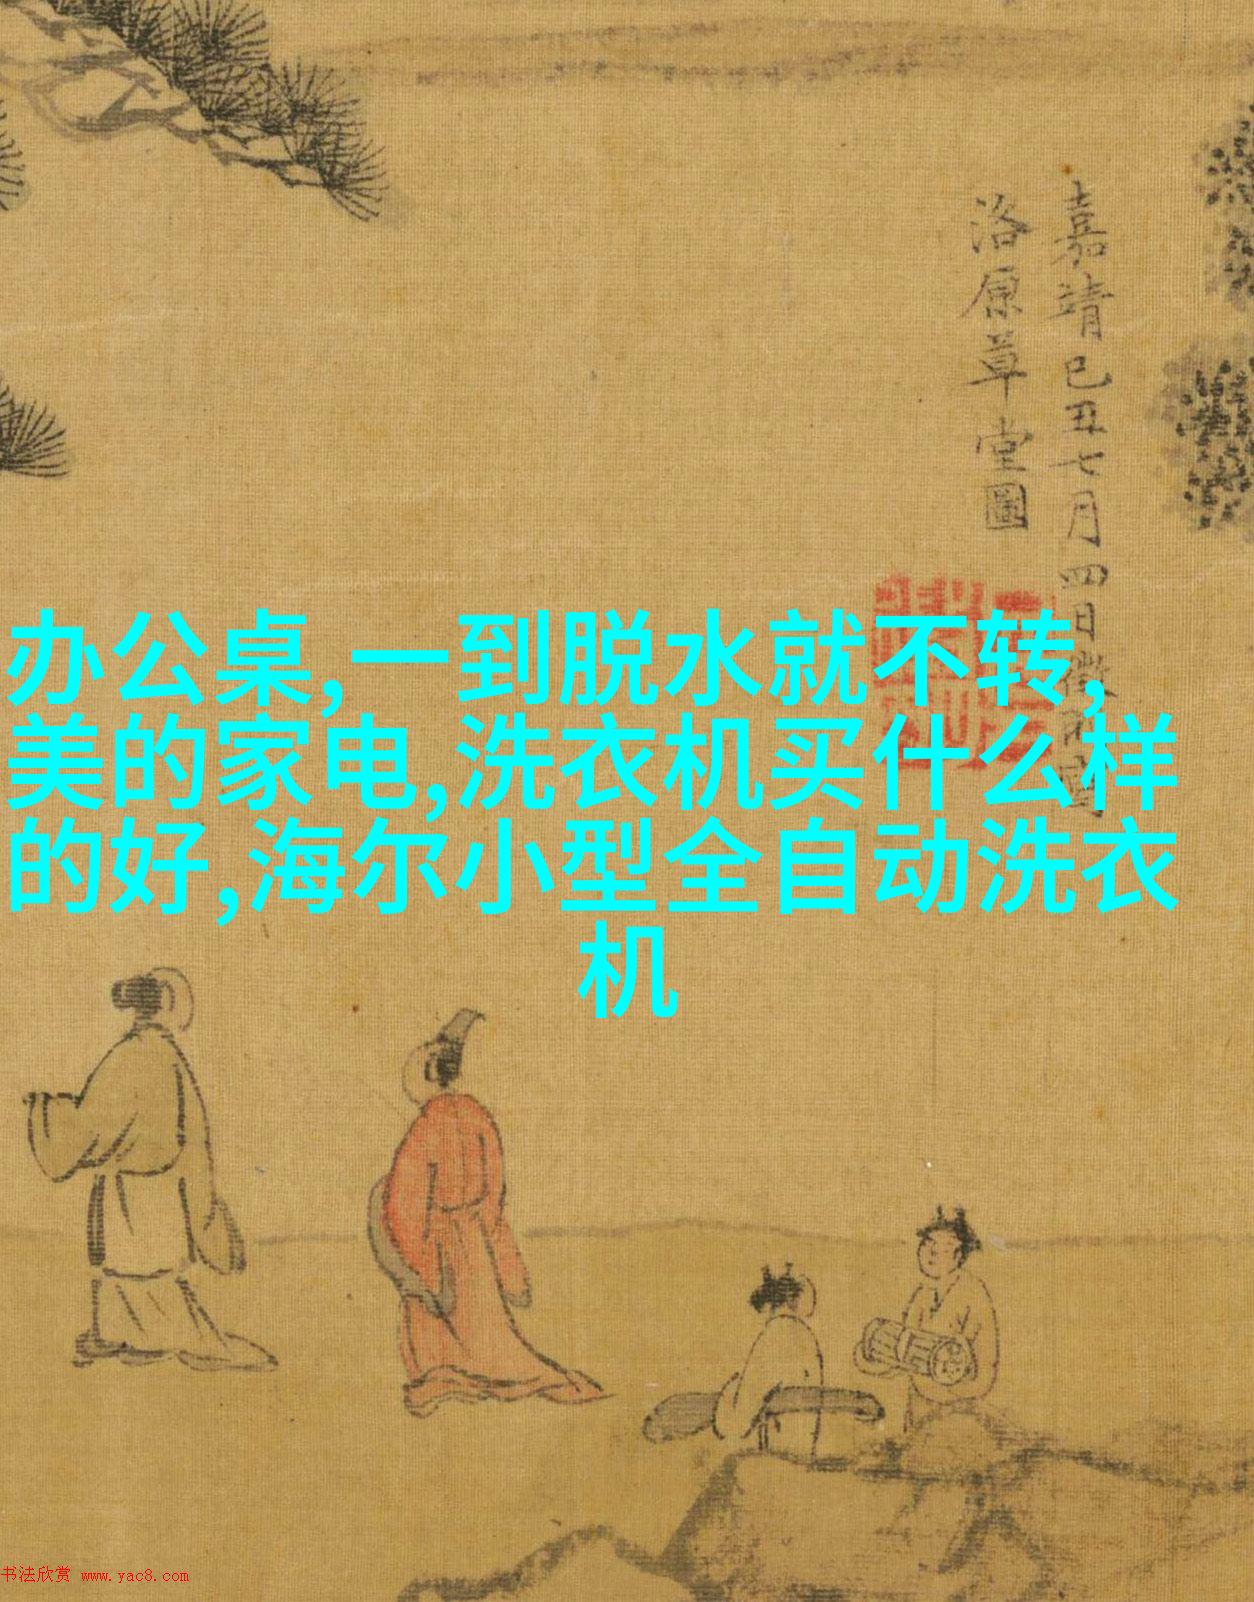 嘉靖己丑七月四日徵明寫
洛原草堂圖
办公桌,一到脱水就不转,
美的家电,洗衣机买什么样
的好,海尔小型全自动洗衣
机
书法欣赏 www.yac8.com